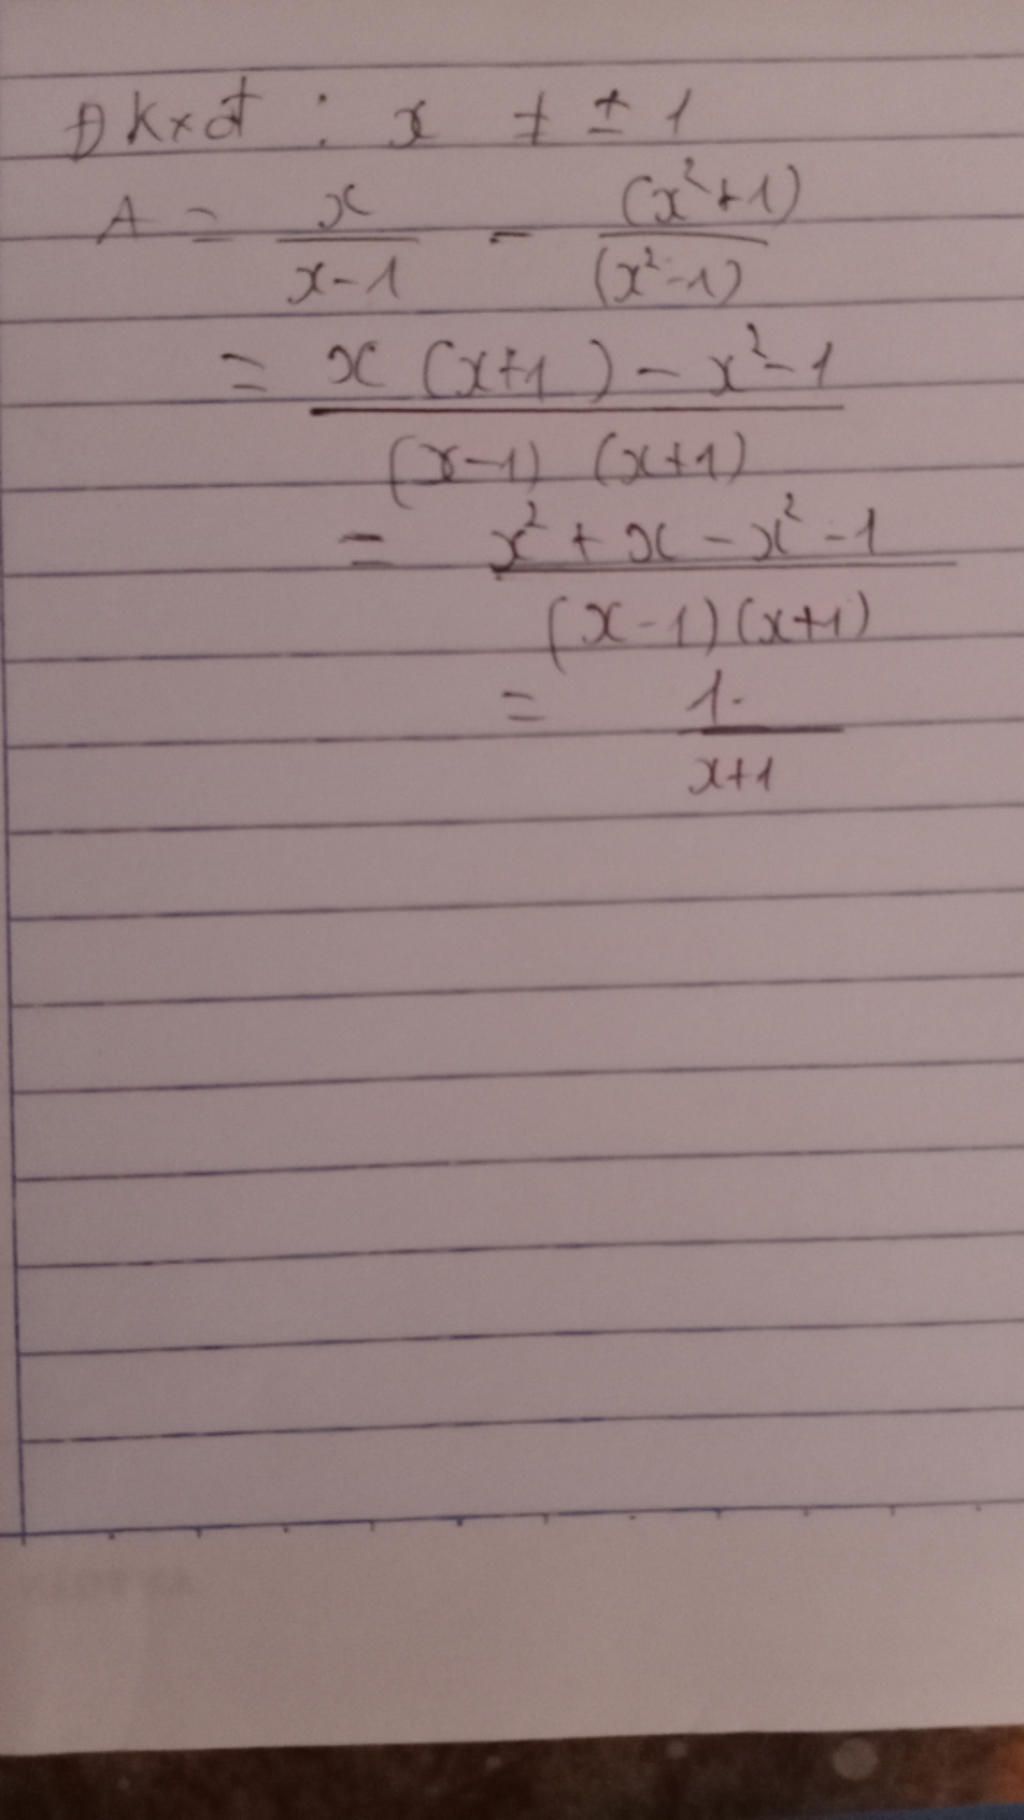 Đkxđ : x ≠ ± 1
A = x/(x-1) - (x²+1)/(x²-1)
= (x (x+1) - x² - 1)/((x-1) (x+1))
= (x² + x - x² - 1)/((x-1)(x+1))
= 1/(x+1)